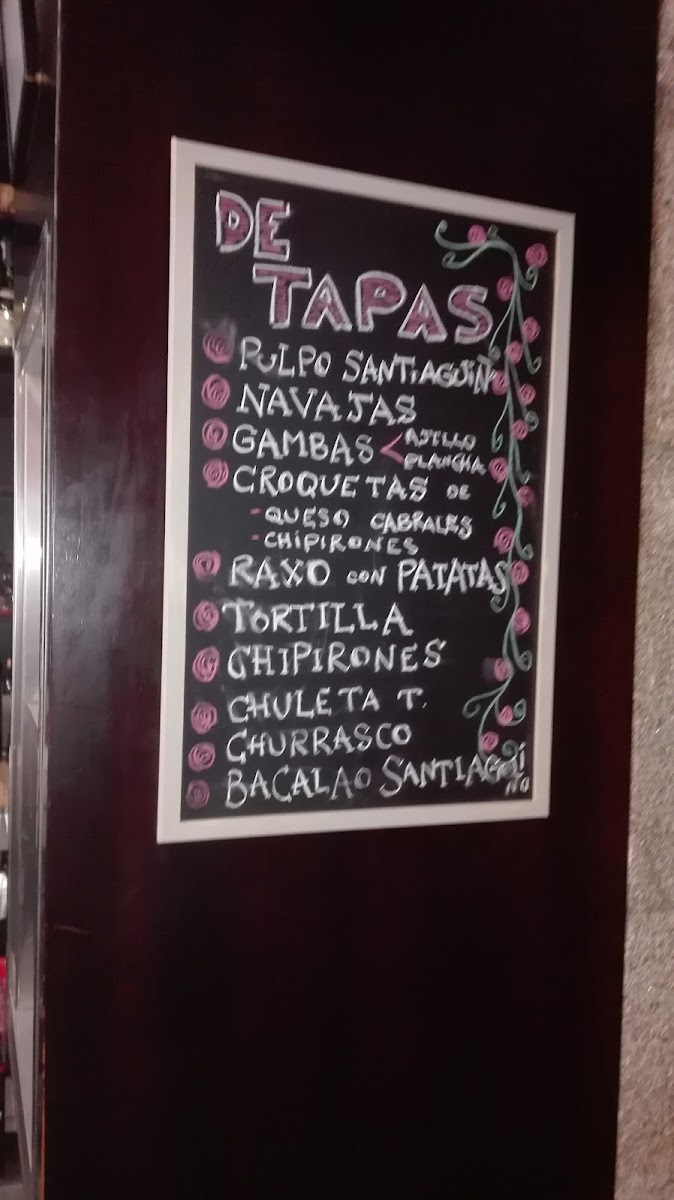 DE
TAPAS
PULPO SANTIAGUIÑO
NAVAJAS
GAMBAS < AJILLO
PLANCHA
CROQUETAS DE
- QUESO CABRALES
- CHIPIRONES
RAXO CON PATATAS
TORTILLA
CHIPIRONES
CHULETA T.
CHURRASCO
BACALAO SANTIAGUI
ÑO